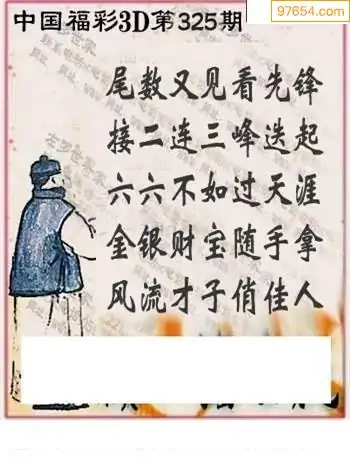 97654.com
中国福彩3D第325期
尾数又见看先锋
接二连三峰迭起
六六不如过天涯
金银财宝随手拿
风流才子俏佳人